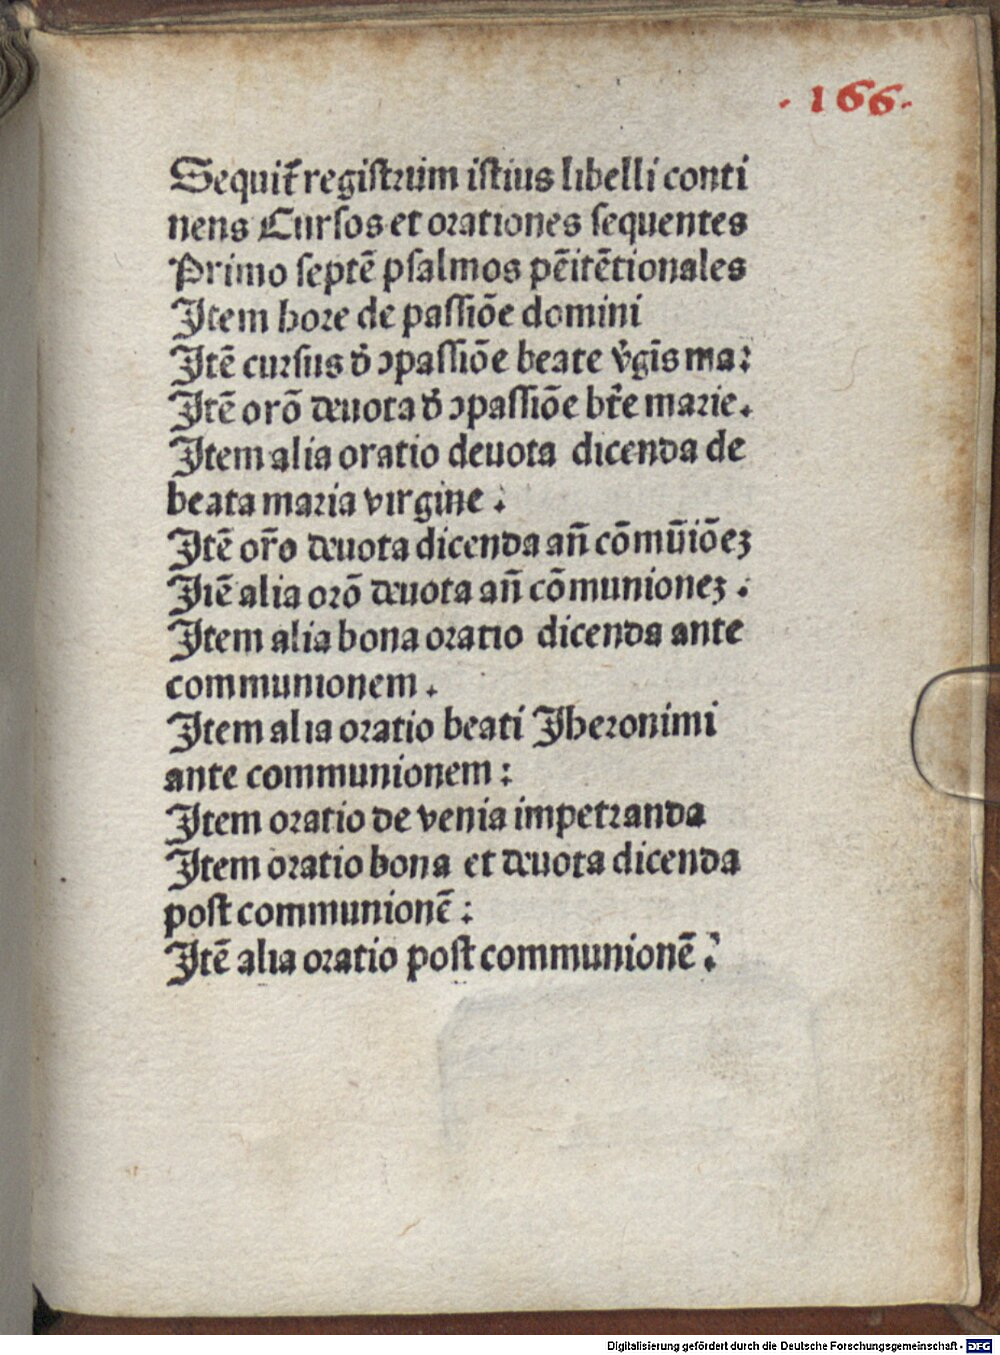 ·166·
Sequit̄ registrum istius libelli conti
nens Cursos et orationes sequentes
Primo septē psalmos pēitētionales
Item hore de passiōe domini
Itē cursus đ ↄpassiōe beate v̄gīs ma:
Itē orō deuota đ ↄpassiōe br̄e marie.
Item alia oratio deuota dicenda de
beata maria virgine .
Itē or̄o deuota dicenda an̄ cōmūiōeꝫ
Itē alia orō deuota an̄ cōmunioneꝫ .
Item alia bona oratio dicenda ante
communionem .
Item alia oratio beati Jheronimi
ante communionem :
Item oratio de venia impetranda
Item oratio bona et deuota dicenda
post communionē :
Itē alia oratio post communionē :
Digitalisierung gefördert durch die Deutsche Forschungsgemeinschaft - DFG